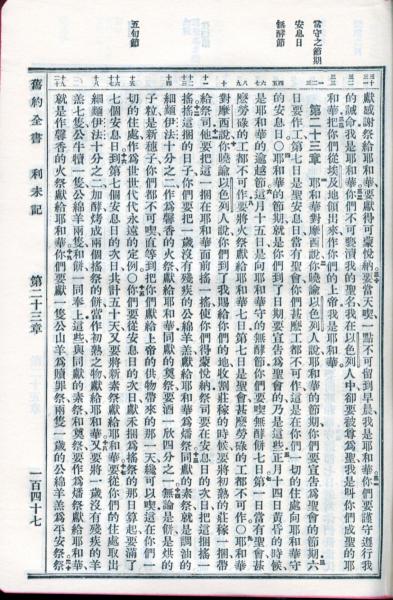 當守之節期
安息日
無酵節
五旬節
獻感謝祭給耶和華要獻得可蒙悅納要當天喫一點不可留到早晨我是耶和華你們要謹守遵行我
的誡命我是耶和華你們不可褻瀆我的聖名我在以色列人中卻要被尊爲聖我是叫你們成聖的耶
和華把你們從埃及地領出來作你們的上帝我是耶和華
第二十三章 耶和華對摩西說你曉諭以色列人說耶和華的節期你們要宣告爲聖會的節期六
日要作工第七日是聖安息日當有聖會你們甚麼工都不可作這是在你們一切的住處向耶和華守
的安息日○耶和華的節期就是你們到了日期要宣告爲聖會的乃是這些正月十四日黃昏的時候
是耶和華的逾越節這月十五日是向耶和華守的無酵節你們要喫無酵餅七日第一日當有聖會甚
麼勞碌的工都不可作要將火祭獻給耶和華七日第七日是聖會甚麼勞碌的工都不可作○耶和華
對摩西說你曉諭以色列人說你們到了我賜給你們的地收割莊稼的時候要將初熟的莊稼一捆帶
給祭司他要把這一捆在耶和華面前搖一搖使你們得蒙悅納祭司要在安息日的次日把這捆搖一
搖搖這捆的日子你們要把一歲沒有殘疾的公綿羊羔獻給耶和華爲燔祭同獻的素祭就是調油的
細麵伊法十分之二作爲馨香的火祭獻給耶和華同獻的奠祭要酒一欣四分之一無論是餅是烘的
子粒是新穗子你們都不可喫直等到把你們獻給上帝的供物帶來的那一天纔可以喫這在你們一
切的住處作爲世世代代永遠的定例○你們要從安息日的次日獻禾捆爲搖祭的那日算起要滿了
七個安息日到第七個安息日的次日共計五十天又要將新素祭獻給耶和華要從你們的住處取出
細麵伊法十分之二加酵烤成兩個搖祭的餅當作初熟之物獻給耶和華又要將一歲沒有殘疾的羊
羔七隻公牛犢一隻公綿羊兩隻和餅一同奉上這些與同獻的素祭和奠祭要作爲燔祭獻給耶和華
就是作馨香的火祭獻給耶和華你們要獻一隻公山羊爲贖罪祭兩隻一歲的公綿羊羔爲平安祭祭
舊約全書 利未記 第二十三章 一百四十七